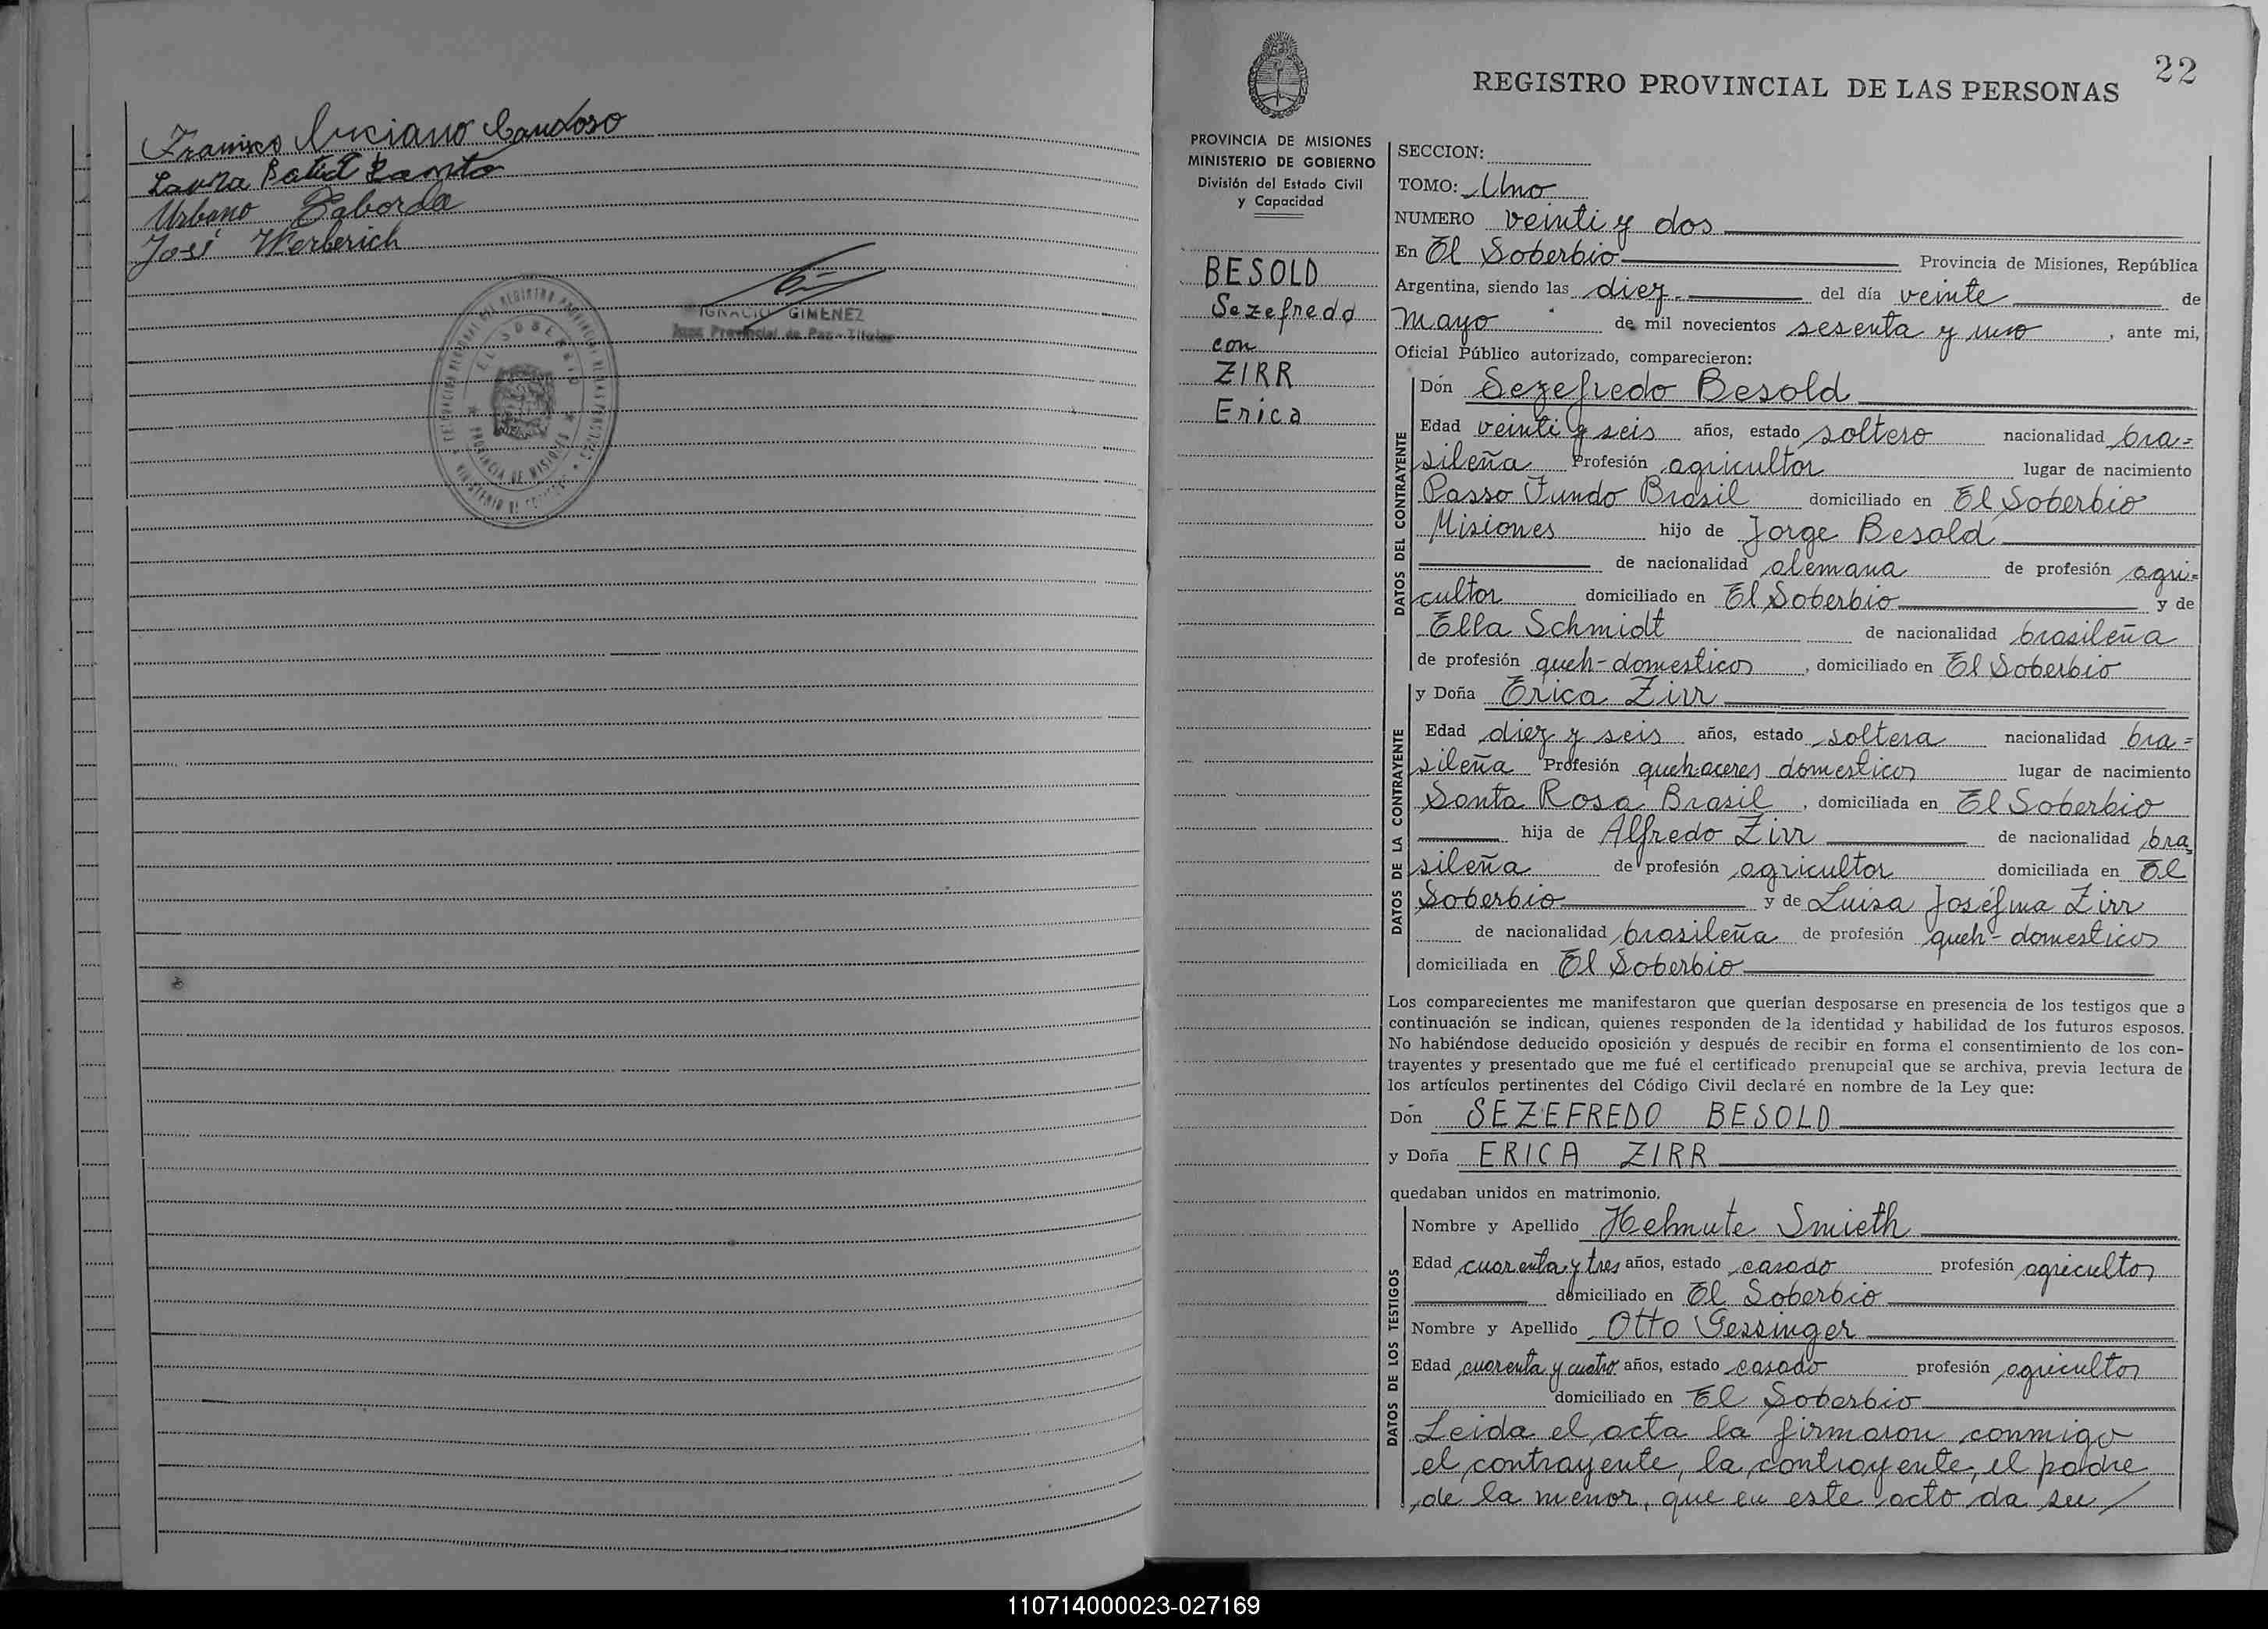 Francisco Luciano Cardoso
Laura
Urbano Taborda
José Werberich
IGNACIO GIMENEZ
Juez Provincial de Paz - Titular
EL SOBERBIO
PROVINCIA DE MISIONES
22
REGISTRO PROVINCIAL DE LAS PERSONAS
PROVINCIA DE MISIONES
MINISTERIO DE GOBIERNO
División del Estado Civil
y Capacidad
BESOLD
Sezefredo
con
ZIRR
Erica
SECCION:
TOMO: Uno
NUMERO veinti y dos
En El Soberbio Provincia de Misiones, República
Argentina, siendo las diez del día veinte de
mayo de mil novecientos sesenta y uno, ante mi,
Oficial Público autorizado, comparecieron:
DATOS DEL CONTRAYENTE
Don Sezefredo Besold
Edad veinti y seis años, estado soltero nacionalidad bra=
sileña Profesión agricultor lugar de nacimiento
Passo Fundo Brasil domiciliado en El Soberbio
Misiones hijo de Jorge Besold
de nacionalidad alemana de profesión agri=
cultor domiciliado en El Soberbio y de
Ella Schmidt de nacionalidad brasileña
de profesión queh-domesticos, domiciliado en El Soberbio
DATOS DE LA CONTRAYENTE
y Doña Erica Zirr
Edad diez y seis años, estado soltera nacionalidad bra=
sileña Profesión quehaceres domesticos lugar de nacimiento
Santa Rosa Brasil, domiciliada en El Soberbio
hija de Alfredo Zirr de nacionalidad bra=
sileña de profesión agricultor domiciliada en El
Soberbio y de Luisa Joséfina Zirr
de nacionalidad brasileña de profesión queh- domesticos
domiciliada en El Soberbio
Los comparecientes me manifestaron que querían desposarse en presencia de los testigos que a
continuación se indican, quienes responden de la identidad y habilidad de los futuros esposos.
No habiéndose deducido oposición y después de recibir en forma el consentimiento de los con-
trayentes y presentado que me fué el certificado prenupcial que se archiva, previa lectura de
los artículos pertinentes del Código Civil declaré en nombre de la Ley que:
Don SEZEFREDO BESOLD
y Doña ERICA ZIRR
quedaban unidos en matrimonio.
DATOS DE LOS TESTIGOS
Nombre y Apellido Helmute Smieth
Edad cuarenta y tres años, estado casado profesión agricultor
domiciliado en El Soberbio
Nombre y Apellido Otto Gessinger
Edad cuarenta y cuatro años, estado casado profesión agricultor
domiciliado en El Soberbio
Leida el acta la firmaron conmigo
el contrayente, la contrayente, el padre
de la menor, que en este acto da su /
110714000023-027169